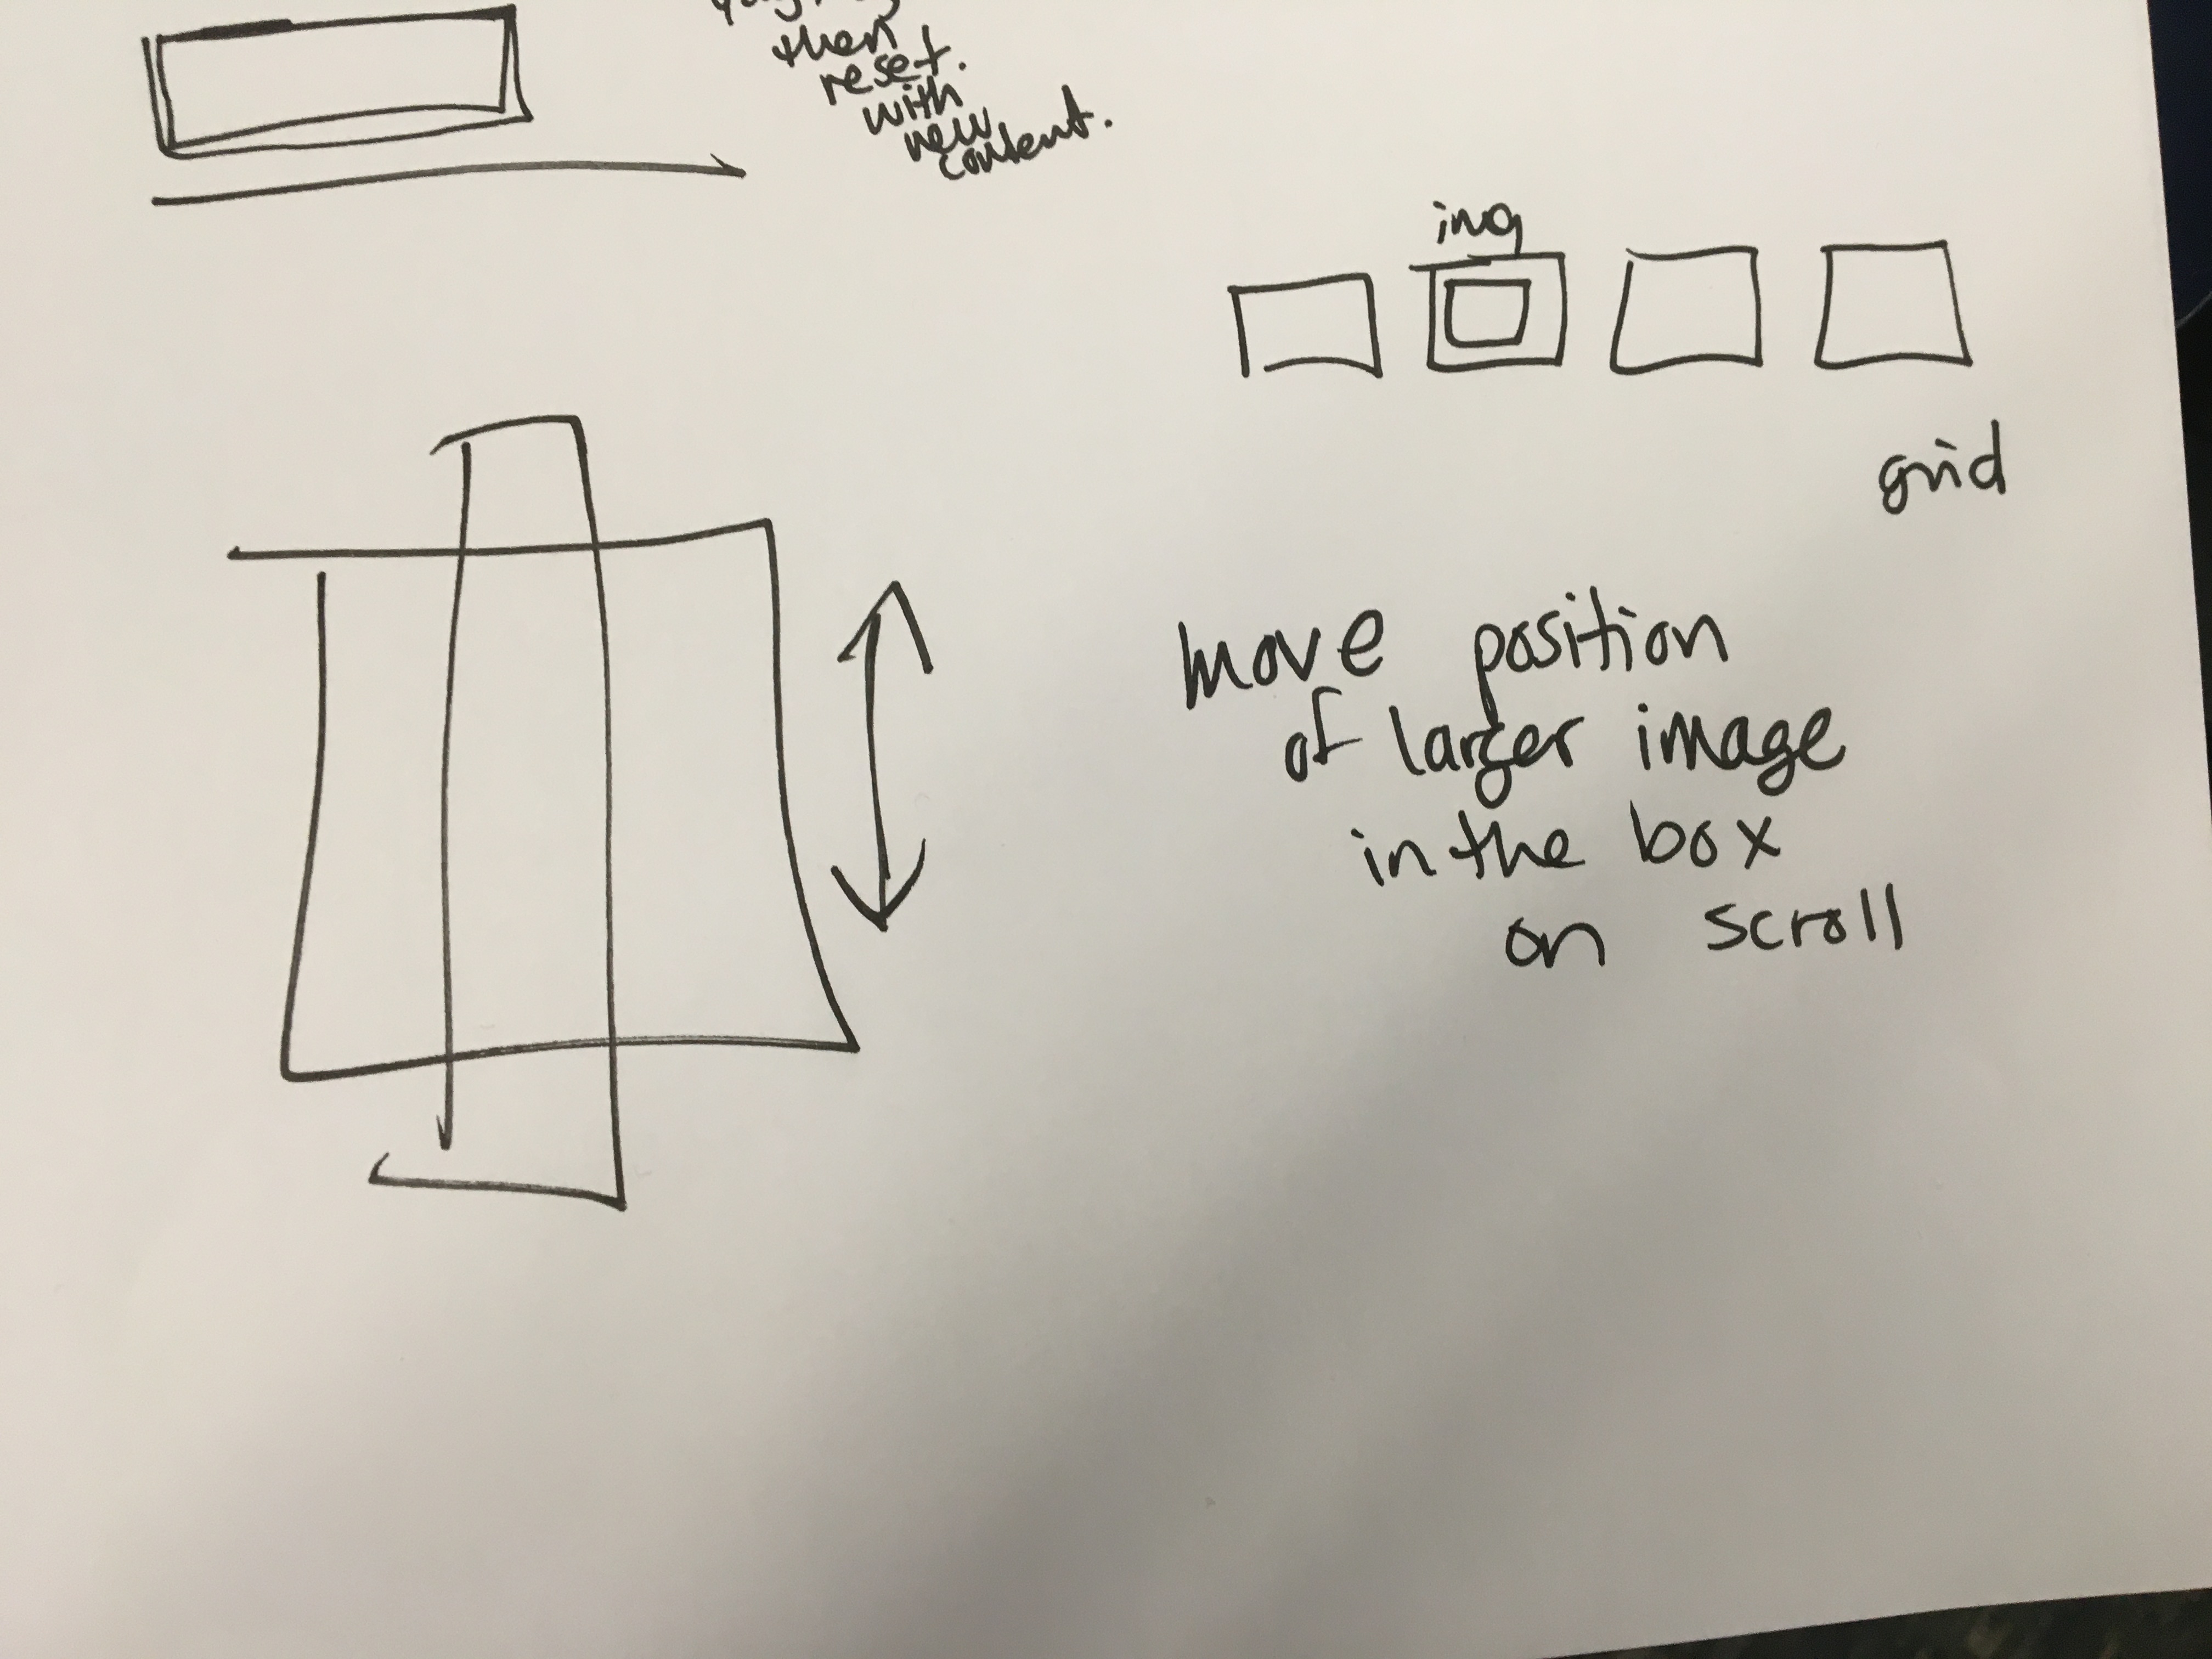 then
reset.
with
new
content.
img
grid
move position
of larger image
in the box
on scroll